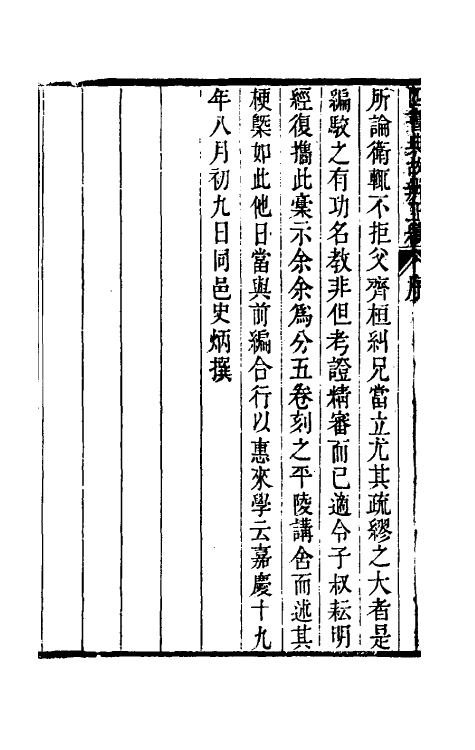 四書典故辨正續 序
所論衛輒不拒父齊桓糾兄當立尤其疏繆之大者是
編駮之有功名教非但考證精審而已適令子叔耘明
經復攜此稾示余余為分五卷刻之平陵講舍而述其
梗槩如此他日當與前編合行以惠來學云嘉慶十九
年八月初九日同邑史炳撰